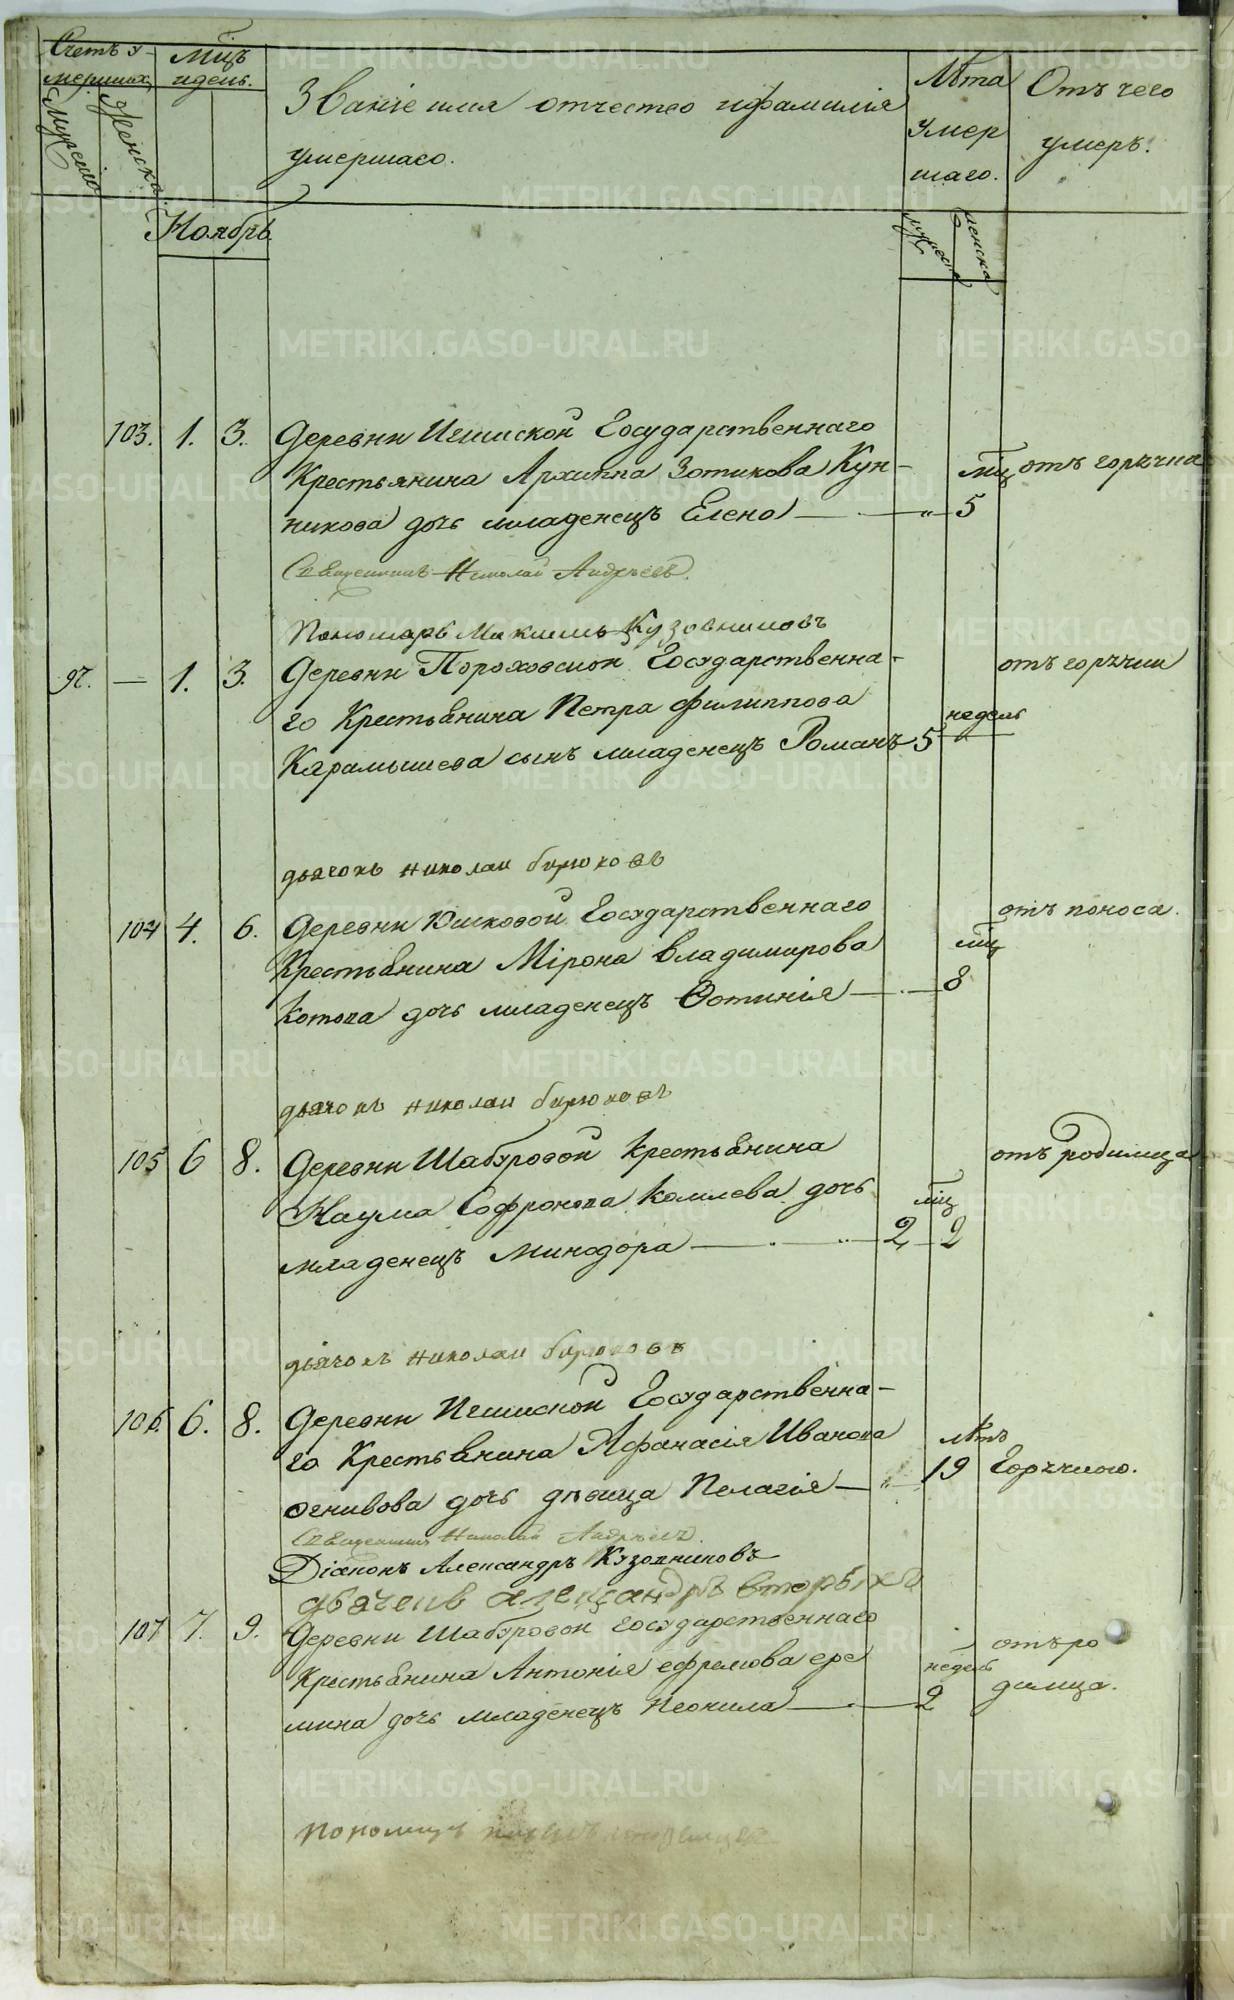 Счетъ у-
мершихъ
Мужеска
Женска
Мцъ
и день.
Званіе имя отчество и фамилія
умершаго.
Лѣта
умер
шаго.
Отъ чего
умеръ.
Ноябрь
мужеска
женска
103. 1. 3. Деревни Игишской Государственнаго
Крестьянина Архиппа Зотикова Кун- мцъ отъ горячки
никова дочь младенецъ Елена 5
Священникъ Николай Андреевъ.
Пономарь Максимъ Кузовниковъ
97. — 1. 3. Деревни Пороховской Государственна- отъ горячки
го Крестьянина Петра Филиппова недель
Карамышева сынъ младенецъ Романъ 5
дьячокъ Николаи Бирюковъ
104 4. 6. Деревни Юшковой Государственнаго отъ поноса.
Крестьянина Мірона Владимирова мцъ
Котова дочь младенецъ Фотинія 8
дьячокъ Николаи Бирюковъ
105 6 8. Деревни Шабуровой Крестьянина отъ родимца
Наума Софронова Комлева дочь мцъ
младенецъ Минодора 2 2
дьячокъ Николаи Бирюковъ
106. 6. 8. Деревни Игишской Государственна-
го Крестьянина Афанасія Иванова лѣтъ
Огнивова дочь девица Пелагія 19 Горячкою.
Священникъ Николай Андреевъ.
Діаконъ Александръ Кузовниковъ
дьячекъ александръ вторыхъ
107 7. 9. Деревни Шабуровой Государственнаго отъ ро
Крестьянина Антонія ефремова ере недель димца.
мина дочь младенецъ Неонила 2
Пономарь
METRIKI.GASO-URAL.RU